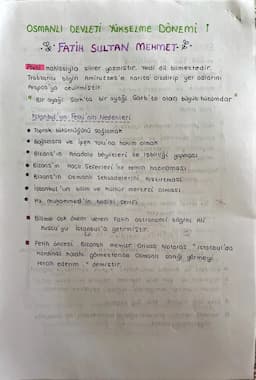 OSMANLI DEVLETİ YÜKSELME DÖNEMİ 1
FATİH SULTAN MEHMET
Avni mahlasıyla şiirler yazmıştır. Yedi dil bilmektedir.
Trabzonlu bilgin Amirutzes'e harita çizdirip yer adlarını
Arapça'ya çevirmiştir.
" Bir ayağı Şark'ta bir ayağı Garb'ta olan büyük hükümdar "
İstanbul'un Fethi'nin Nedenleri
• Toprak bütünlüğünü sağlamak
• Boğazlara ve İpek Yolu'na hakim olmak
• Bizans'ın Anadolu beylikleri ile işbirliği yapması
• Bizans'ın Haçlı Seferleri'ne zemin hazırlaması
• Bizans'ın Osmanlı Şehzadelerini kışkırtması
• İstanbul'un bilim ve kültür merkezi olması
• Hz. Muhammed'in hadisi şerifi
▪ Bilime çok önem veren Fatih astronomi bilgini Ali
Kuşçu'yu İstanbul'a getirmiştir.
▪ Fetih öncesi Bizanslı memur Grikas Notaras " İstanbul'da
Kardinal külahı görmektense Osmanlı sarığı görmeyi
tercih ederim. " demiştir.